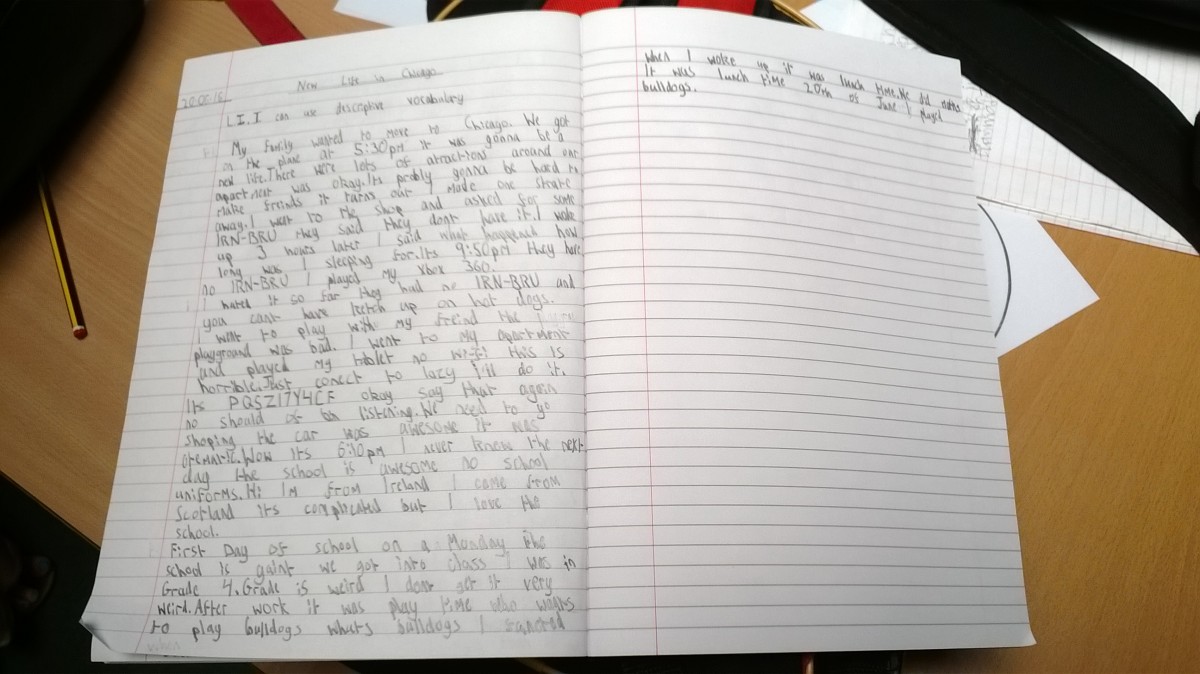 New Life in Chicago
L.I. I can use descriptive vocabulary
My family wanted to move to Chicago. We got
on the plane at 5:30pm it was gonna be a
new life. There were lots of atractions around our
apartment was okay. Its probly gonna be hard to
make freinds it turns out I made one straite
away. I went to the shop and asked for some
IRN-BRU they said they dont have it. I woke
up 3 hours later I said what happend how
long was I sleeping for. Its 9:50pm they have
no IRN-BRU I played my Xbox 360.
I hated it so far they had no IRN-BRU and
you cant have ketch up on hot dogs.
I went to play with my freind the
playground was bad. I went to my apartment
and played my tablet no wifi this is
horrible. Just conect to lazy I'll do it.
Its PQSZ17Y4CF okay say that again
no should of bn listining. We need to go
shoping the car was awesome it was
otematic. Wow its 6:10pm I never knew the next
day the school is awesome no school
uniforms. Hi Im from Ireland I came from
Scotland its complicated but I love the
school.
First Day of school on a Monday the
school is gaint we got into class I was in
Grade 4. Grade is weird I dont get it very
weird. After work it was play time who wants
to play bulldogs whats bulldogs I
When I woke up it was lunch time. We did maths
It was lunch time 20th of June I played
bulldogs.